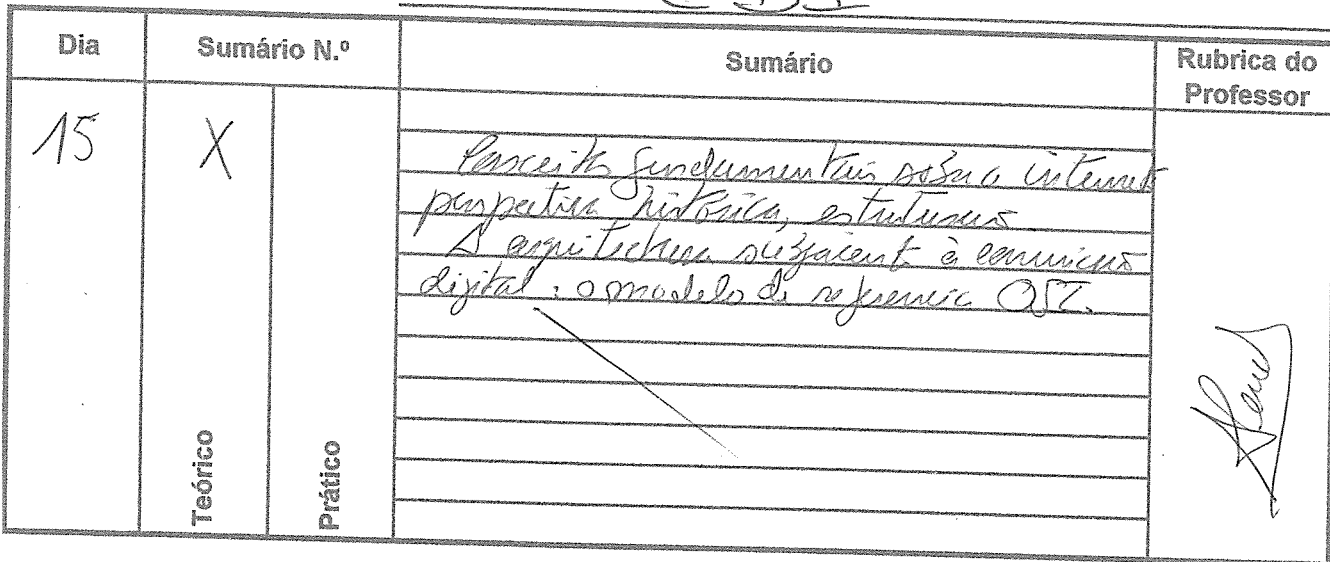 Dia
Sumário N.º
Sumário
Rubrica do
Professor
15
X
Conceitos fundamentais sobre a internet
perspectiva histórica, estrutura
A arquitectura subjacente à comunicação
digital: o modelo de referência OSI.
Teórico
Prático